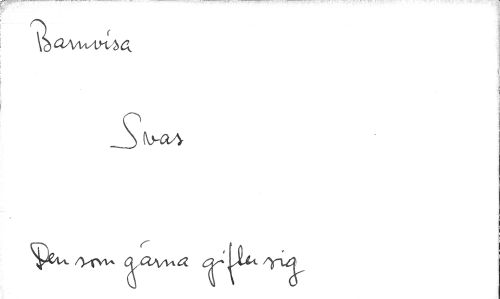 Barnvisa
Svas
Den som gärna gifter sig